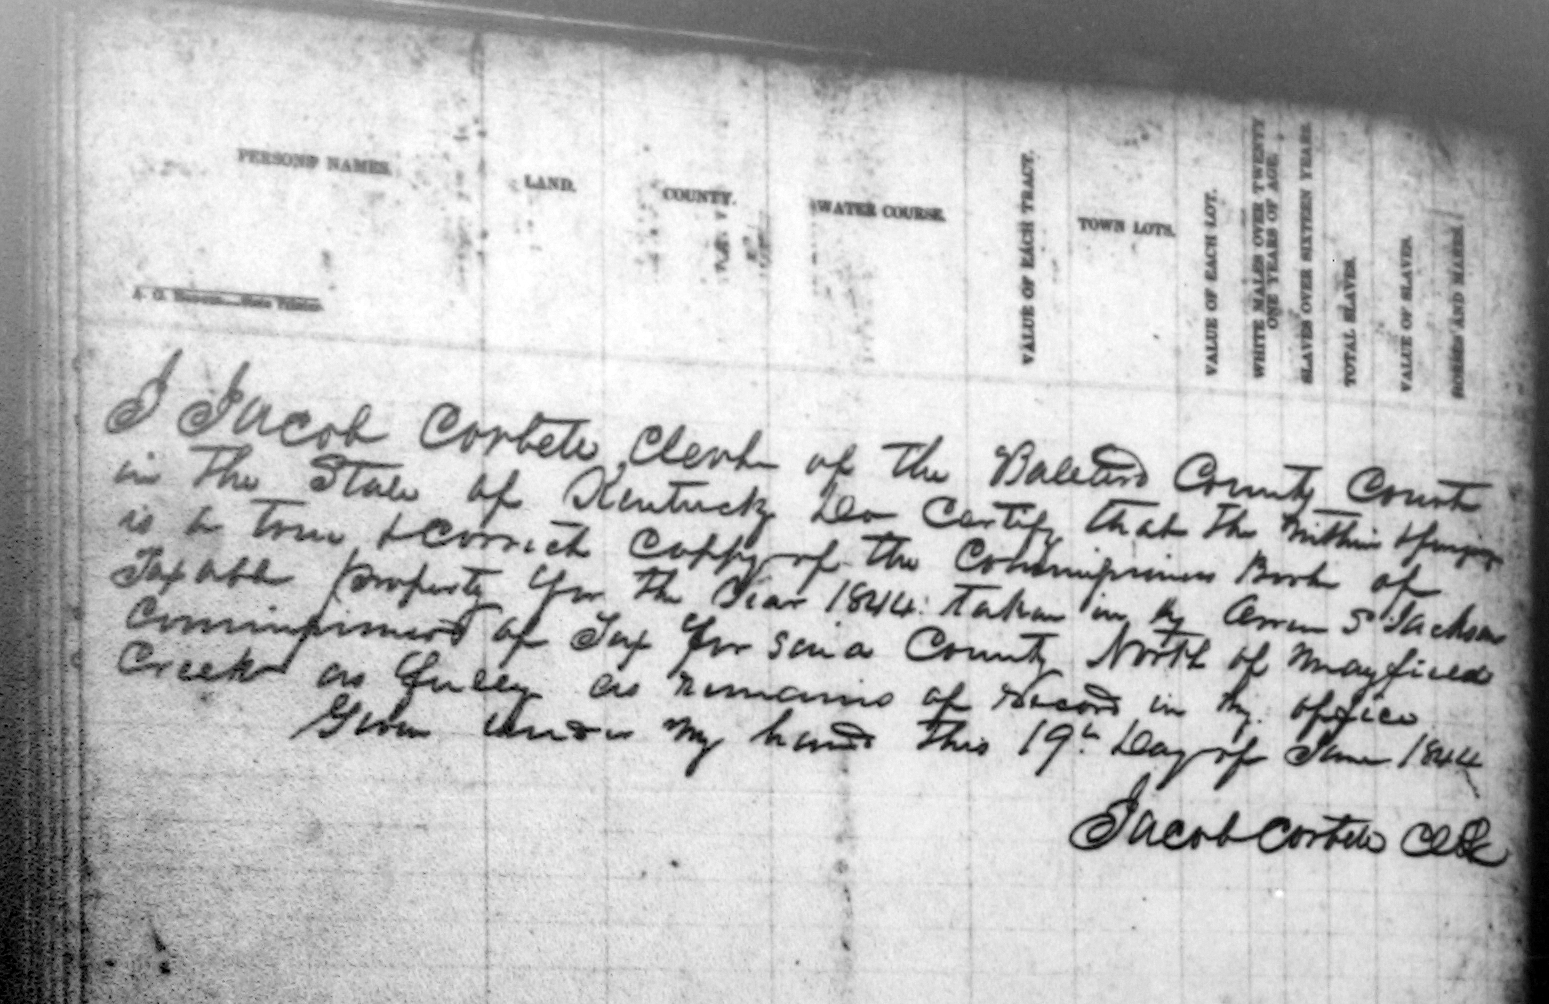 PERSONS' NAMES.
LAND.
COUNTY.
WATER COURSE.
VALUE OF EACH TRACT.
TOWN LOTS.
VALUE OF EACH LOT.
WHITE MALES OVER TWENTY
ONE YEARS OF AGE.
SLAVES OVER SIXTEEN YEARS.
TOTAL SLAVES.
VALUE OF SLAVES.
HORSES AND MARES.
State Printer.
I Jacob Corbett Clerk of the Ballard County Court
in the State of Kentucky Do Certify that the within
is a true & correct coppy of the Commissioners Book of
Taxable property for the Year 1844 taken in by S Jackson
Commissioner of Tax for said County North of Mayfield
Creek as fully as remains of Record in my office
Given under my hand this 19th Day of June 1844
Jacob Corbett Clk